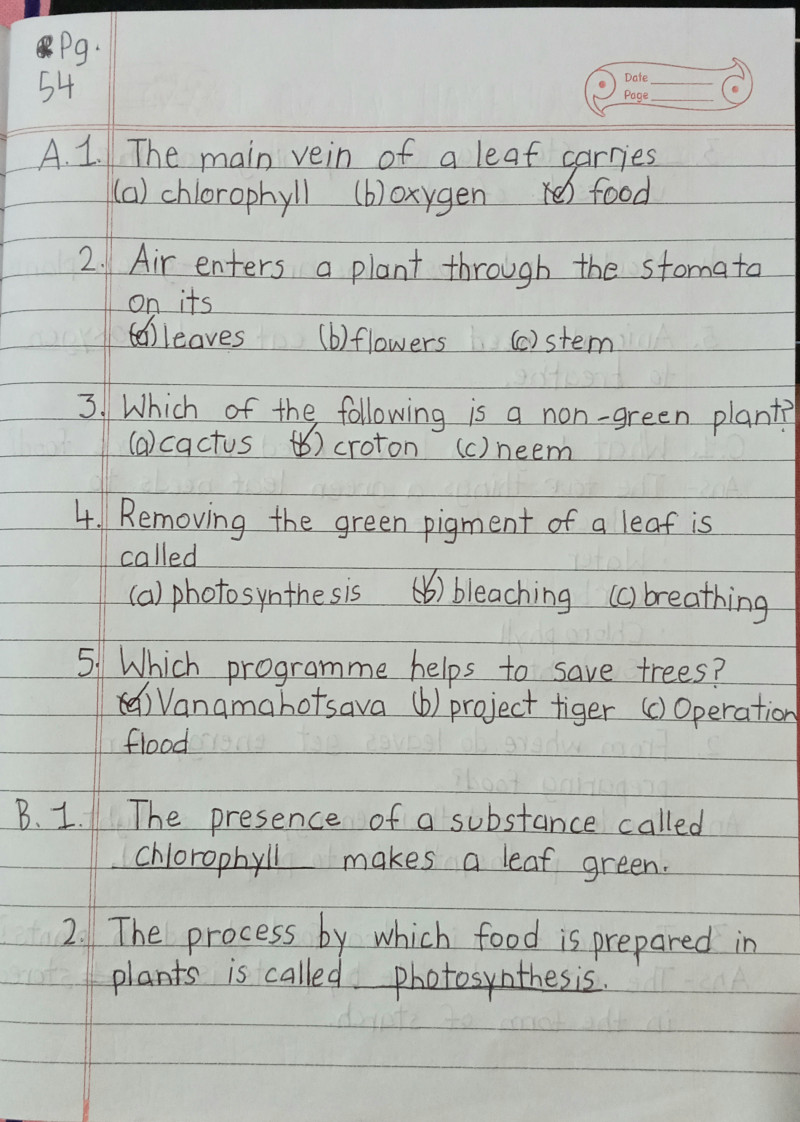 Pg.
54
Date
Page
A.1. The main vein of a leaf carries
(a) chlorophyll (b) oxygen (c) food
2. Air enters a plant through the stomata
on its
(a) leaves (b) flowers (c) stem
3. Which of the following is a non-green plant?
(a) cactus (b) croton (c) neem
4. Removing the green pigment of a leaf is
called
(a) photosynthesis (b) bleaching (c) breathing
5. Which programme helps to save trees?
(a) Vanamahotsava (b) project tiger (c) Operation
flood
B. 1. The presence of a substance called
chlorophyll makes a leaf green.
2. The process by which food is prepared in
plants is called photosynthesis.